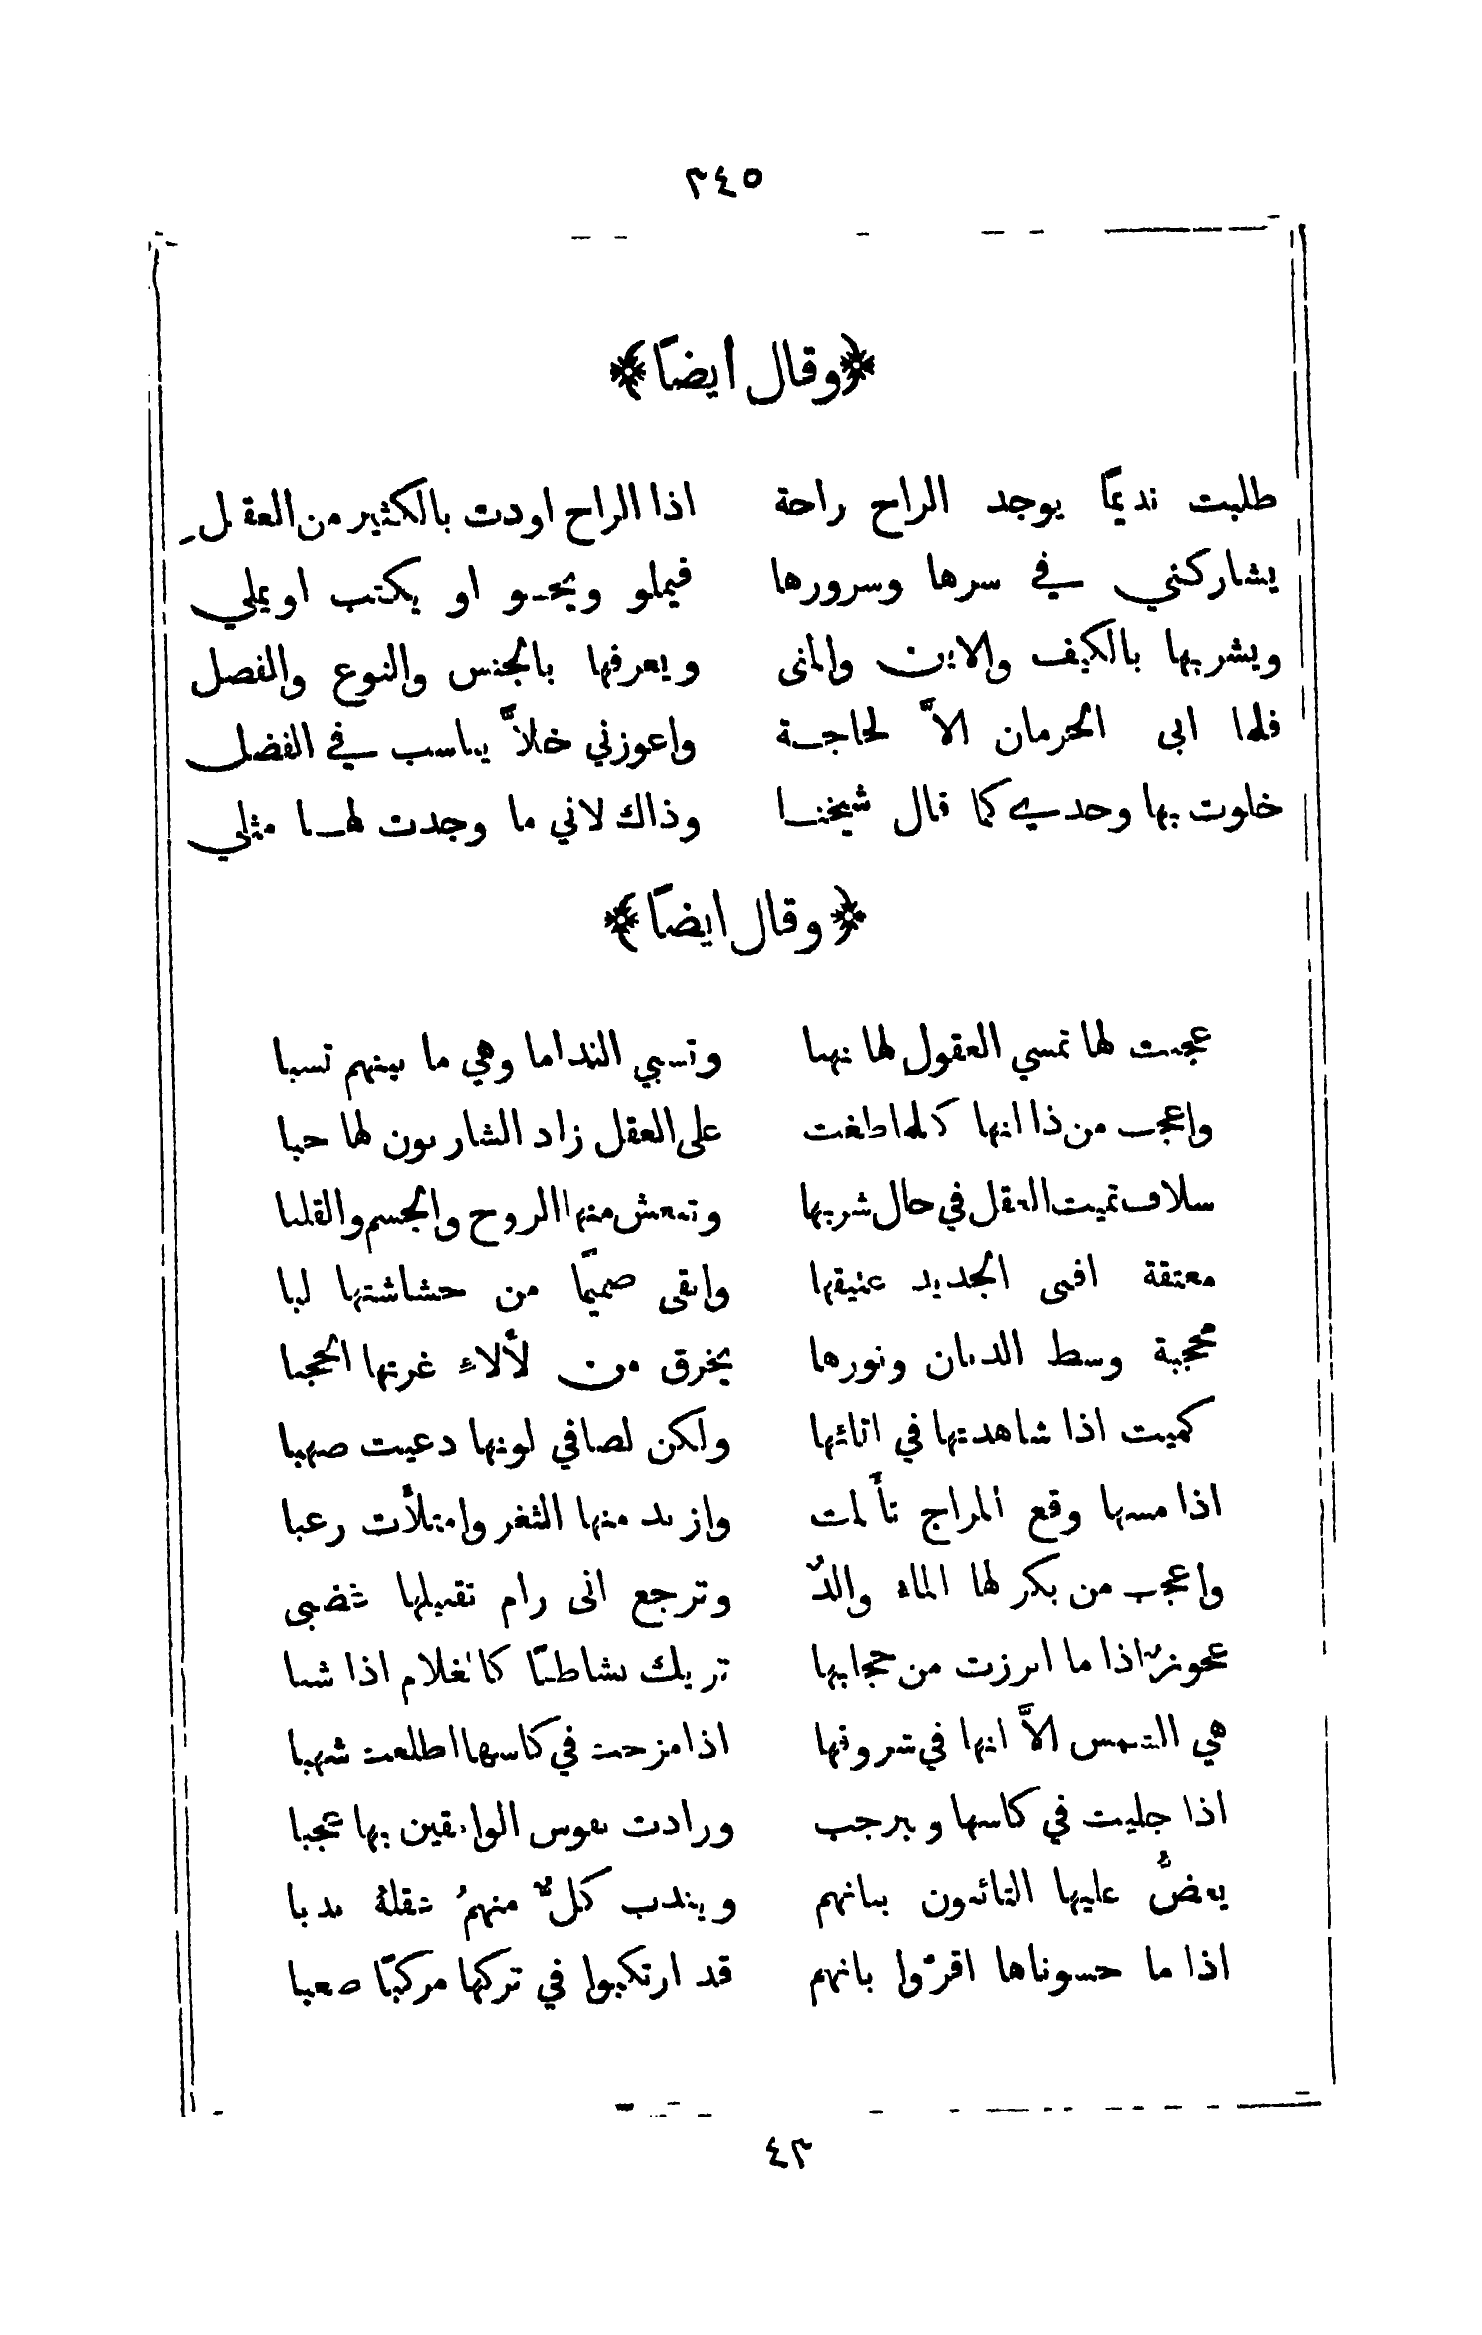 ٣٤٥
﴿وقال أيضاً﴾
طلبت نديماً يوجد الراح راحة اذا الراح اودت بالكثير من العقل
يشاركني في سرها وسرورها فيملو ويحـو او يكتب او يملي
ويشربها بالكيف والاين والمنى ويعرفها بالجنس والنوع والفصل
فلما ابى الحرمان الاَّ لحاجـة واعوزني خلاًّ يناسب في الفضل
خلوت بها وحدي كما قال شيخنـا وذاك لاني ما وجدت لهـا مثلي
﴿وقال ايضاً﴾
عجبت لها تمسي العقول لها نهبا وتسبي النداما وهي ما بينهم تسبا
واعجب من ذا انها كلما طغت على العقل زاد الشاربون لها حبا
سلاف تميت العقل في حال شربها وتنعش منها الروح والجسم والقلبا
معتقة افنى الجديد عتيقها وابقى صميماً من حشاشتها لبا
محجبة وسط الدنان ونورها يخرق من لألاء غرتها الحجبا
كميت اذا شاهدتها في انائها ولكن لصافي لونها دعيت صهبا
اذا مسها وقع المزاج تألمت وازبد منها الثغر وامتلأت رعبا
واعجب من بكر لها الماء والدٌ وترجع انى رام تقبيلها غضبى
عجوزٌ اذا ما ابرزت من حجابها تريك نشاطاً كالغلام اذا شبا
هي الشمس الاَّ انها في شروقها اذا مزجت في كاسها اطلعت شهبا
اذا جليت في كاسها وتبرجت وزادت نفوس الواثقين بها عجبا
يعضُّ عليها التائبون بنانهم ويندب كلٌّ منهمُ عقلهُ ندبا
اذا ما حسوناها اقرّوا بانهم قد ارتكبوا في تركها مركباً صعبا
٤٣